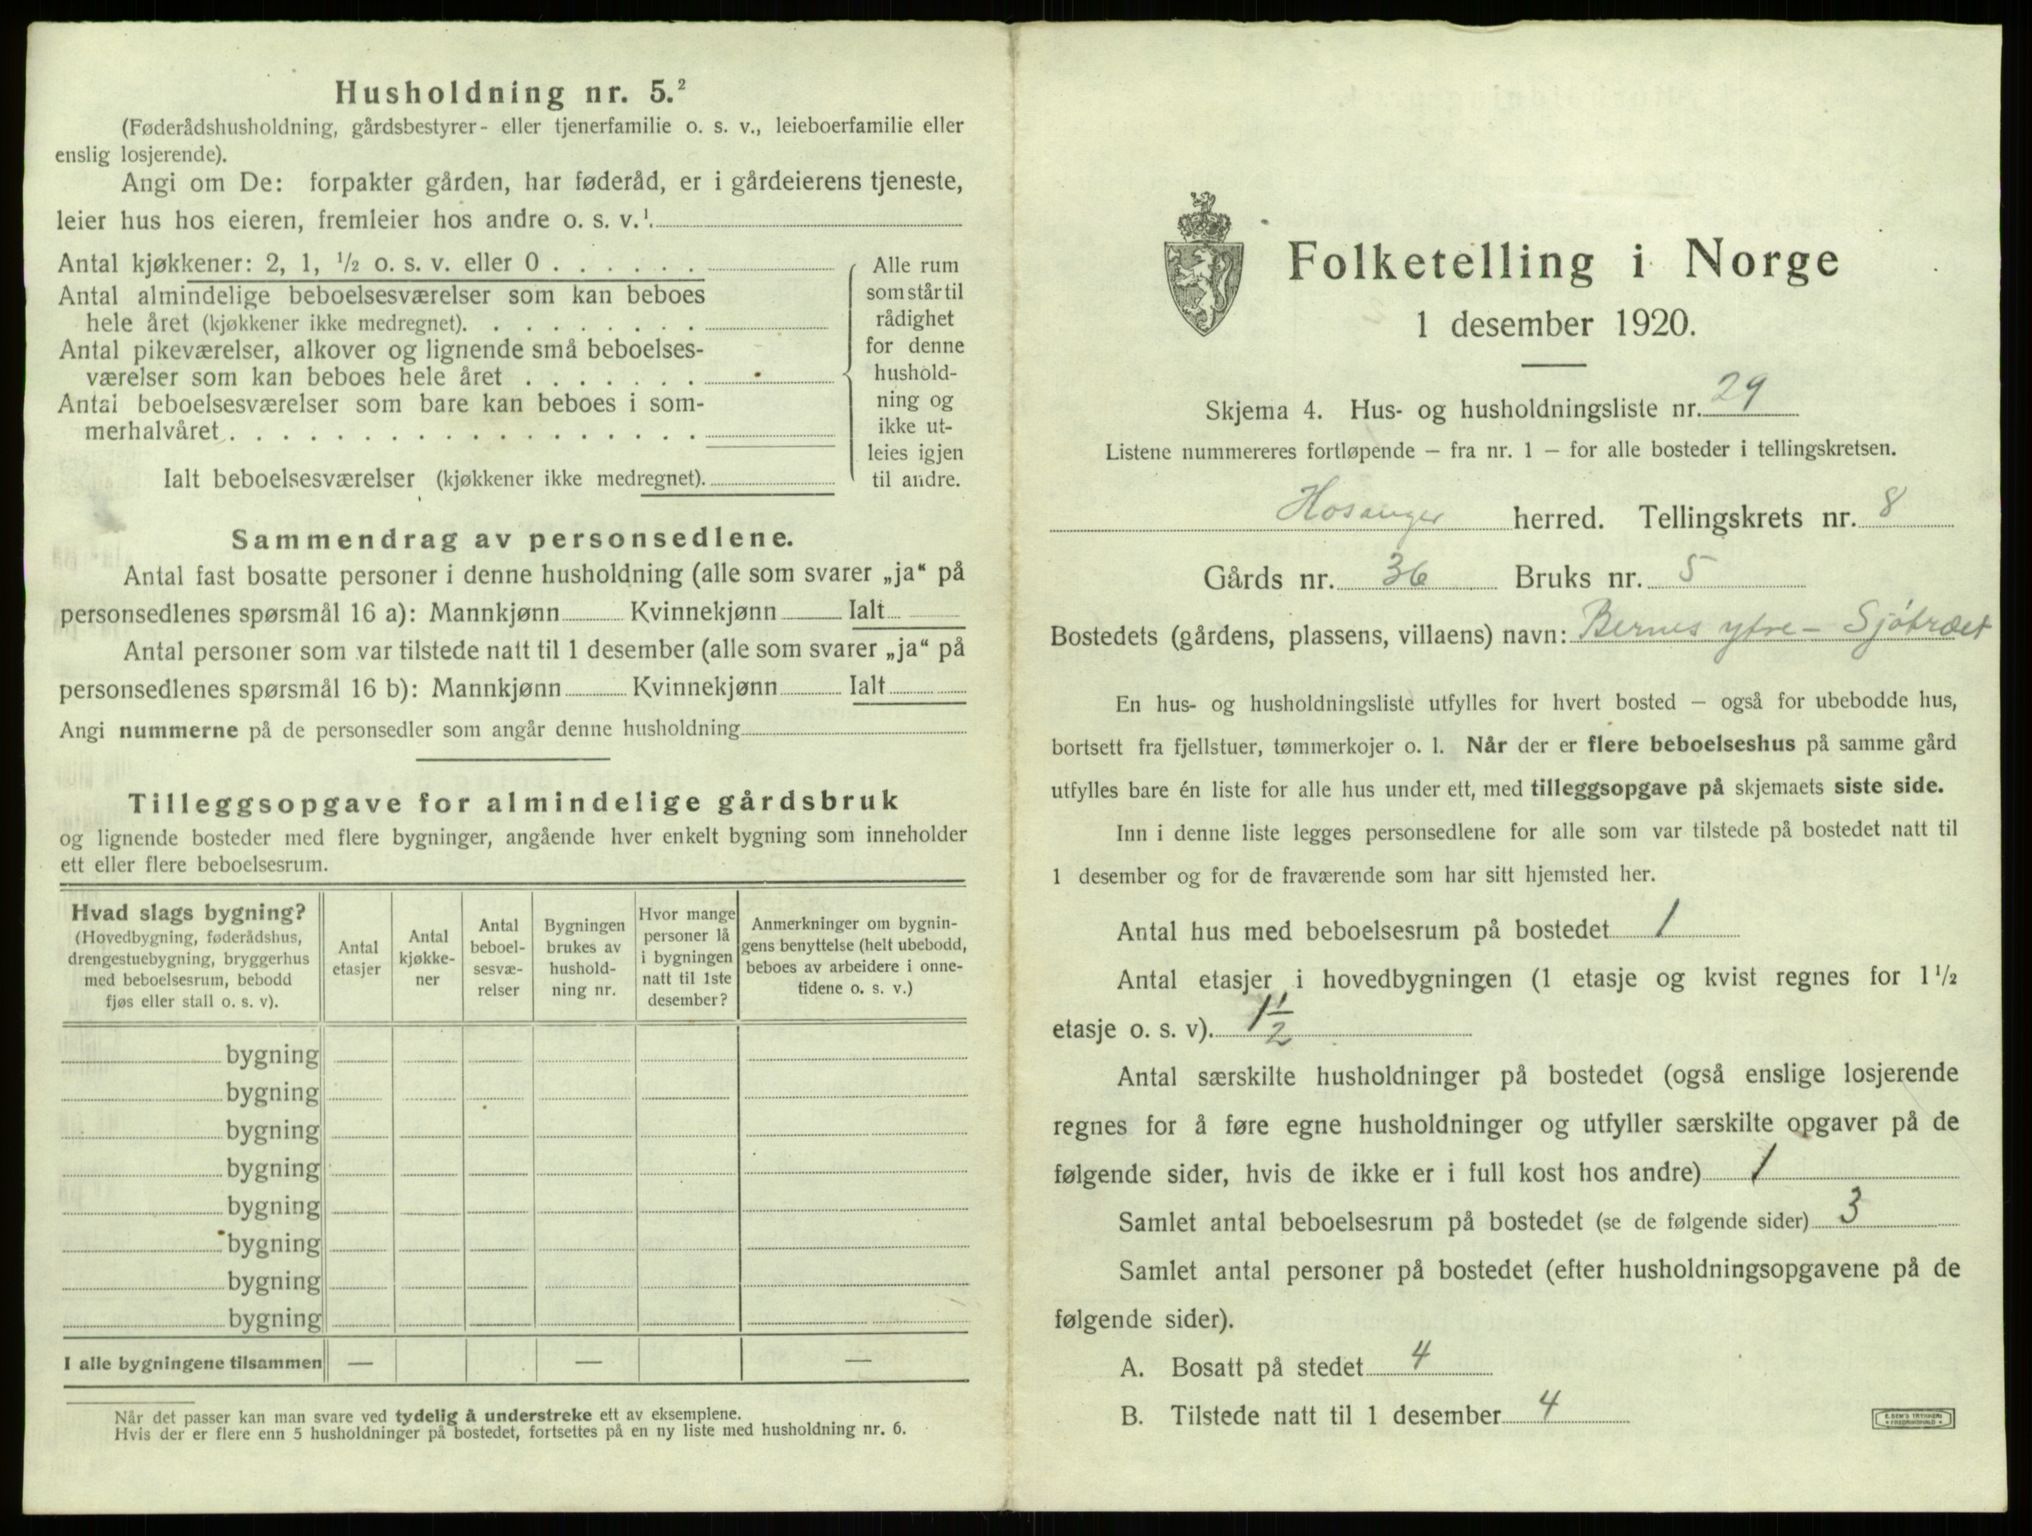 Husholdning nr. 5.²
(Føderådshusholdning, gårdsbestyrer- eller tjenerfamilie o. s. v., leieboerfamilie eller
enslig losjerende).
Angi om De: forpakter gården, har føderåd, er i gårdeierens tjeneste,
leier hus hos eieren, fremleier hos andre o. s. v.¹
Antal kjøkkener: 2, 1, ½ o. s. v. eller 0 . . . . . .
Antal almindelige beboelsesværelser som kan beboes
hele året (kjøkkener ikke medregnet). . . . . . . . .
Antal pikeværelser, alkover og lignende små beboelses-
værelser som kan beboes hele året . . . . . . .
Antal beboelsesværelser som bare kan beboes i som-
merhalvåret . . . . . . . . . . . . . . . . .
Ialt beboelsesværelser (kjøkkener ikke medregnet).
Alle rum
som står til
rådighet
for denne
hushold-
ning og
ikke ut-
leies igjen
til andre.
Sammendrag av personsedlene.
Antal fast bosatte personer i denne husholdning (alle som svarer „ja“ på
personsedlenes spørsmål 16 a): Mannkjønn Kvinnekjønn Ialt
Antal personer som var tilstede natt til 1 desember (alle som svarer „ja“ på
personsedlenes spørsmål 16 b): Mannkjønn Kvinnekjønn Ialt
Angi nummerne på de personsedler som angår denne husholdning
Tilleggsopgave for almindelige gårdsbruk
og lignende bosteder med flere bygninger, angående hver enkelt bygning som inneholder
ett eller flere beboelsesrum.
Hvad slags bygning?
(Hovedbygning, føderådshus,
drengestuebygning, bryggerhus
med beboelsesrum, bebodd
fjøs eller stall o. s. v).
Antal
etasjer
Antal
kjøkke-
ner
Antal
beboel-
sesvæ-
relser
Bygningen
brukes av
hushold-
ning nr.
Hvor mange
personer lå
i bygningen
natt til 1ste
desember?
Anmerkninger om bygnin-
gens benyttelse (helt ubebodd,
beboes av arbeidere i onne-
tidene o. s. v.)
bygning
bygning
bygning
bygning
bygning
bygning
bygning
bygning
I alle bygningene tilsammen — — —
Når det passer kan man svare ved tydelig å understreke ett av eksemplene.
Hvis der er flere enn 5 husholdninger på bostedet, fortsettes på en ny liste med husholdning nr. 6.
Folketelling i Norge
1 desember 1920.
Skjema 4. Hus- og husholdningsliste nr. 29
Listene nummereres fortløpende – fra nr. 1 – for alle bosteder i tellingskretsen.
Hosanger herred. Tellingskrets nr. 8
Gårds nr. 36 Bruks nr. 5
Bostedets (gårdens, plassens, villaens) navn: Bernes ytre – Sjøtræet
En hus- og husholdningsliste utfylles for hvert bosted – også for ubebodde hus,
bortsett fra fjellstuer, tømmerkojer o. l. Når der er flere beboelseshus på samme gård
utfylles bare én liste for alle hus under ett, med tilleggsopgave på skjemaets siste side.
Inn i denne liste legges personsedlene for alle som var tilstede på bostedet natt til
1 desember og for de fraværende som har sitt hjemsted her.
Antal hus med beboelsesrum på bostedet 1
Antal etasjer i hovedbygningen (1 etasje og kvist regnes for 1½
etasje o. s. v). 1½
Antal særskilte husholdninger på bostedet (også enslige losjerende
regnes for å føre egne husholdninger og utfyller særskilte opgaver på de
følgende sider, hvis de ikke er i full kost hos andre) 1
Samlet antal beboelsesrum på bostedet (se de følgende sider) 3
Samlet antal personer på bostedet (efter husholdningsopgavene på de
følgende sider).
A. Bosatt på stedet 4
B. Tilstede natt til 1 desember 4